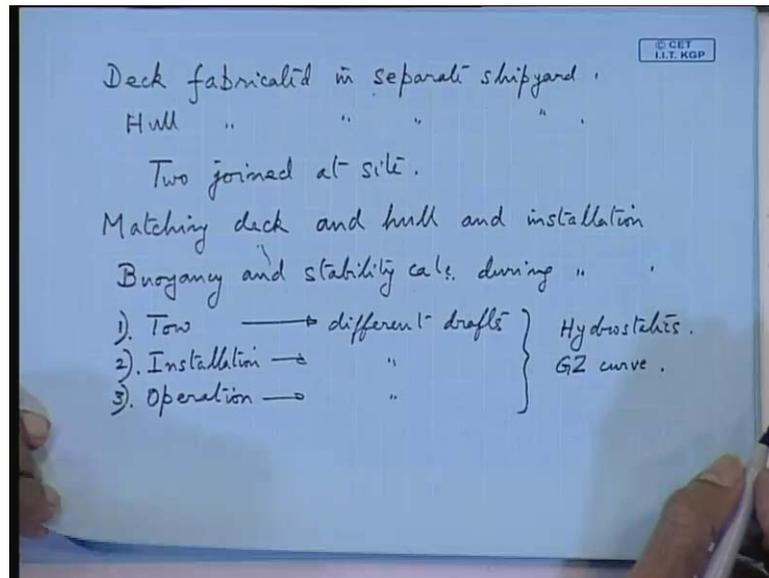 © CET
I.I.T. KGP
Deck fabricated in separate shipyard.
Hull " " " " .
Two joined at site.
Matching deck and hull and installation
Buoyancy and stability cals. during " .
1). Tow → different drafts } Hydrostatics.
2). Installation → " GZ curve.
3). Operation → "